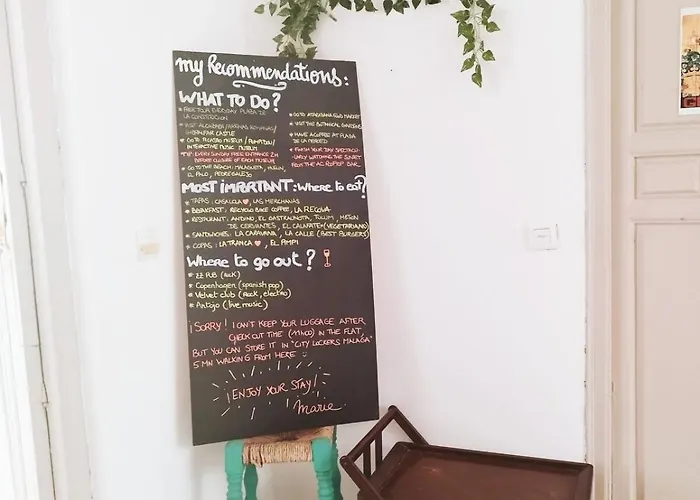 my Recommendations:
WHAT TO DO?
* FREE TOUR EVERYDAY PLAZA DE
LA CONSTITUCION
* VISIT ALCAZABA /
CASTLE
* GO TO PICASSO MUSEUM / POMPIDOU /
INTERACTIVE MUSIC MUSEUM
TIP: EVERY SUNDAY FREE ENTRANCE 2H
BEFORE CLOSURE OF EACH MUSEUM
* GO TO THE BEACH: MALAGUETA, HUELIN,
EL PALO, PEDREGALEJO
* GO TO ATARAZANAS FOOD MARKET
* VISIT THE BOTANICAL GARDENS
* HAVE A COFFEE AT PLAZA
DE LA MERCED
* FINISH YOUR DAY SPECTACU-
LARLY WATCHING THE SUNSET
FROM THE AC ROFTOP BAR.
MOST IMPORTANT: Where to eat?
* TAPAS: CASA LOLA ♥, LAS MERCHANAS
* BREAKFAST: RECYCLO BIKE COFFEE, LA RECOVA
* RESTAURANT: ANDINO, EL GASTRONAUTA, TULUM, MESON
DE CERVANTES, EL CALAFATE♥ (VEGETARIANO)
* SANDWICHES: LA CARAVANA, LA CALLE (BEST BURGERS)
* COPAS: LA TRANCA ♥, EL PIMPI
Where to go out?
* ZZ PUB (rock)
* Copenhagen (spanish pop)
* Velvet club (Rock, electro)
* Antojo (live music)
¡SORRY! I CAN'T KEEP YOUR LUGGAGE AFTER
CHECK OUT TIME (11h00) IN THE FLAT,
BUT YOU CAN STORE IT IN "CITY LOCKERS MALAGA"
5 MN WALKING FROM HERE
¡ENJOY YOUR STAY!
Marie